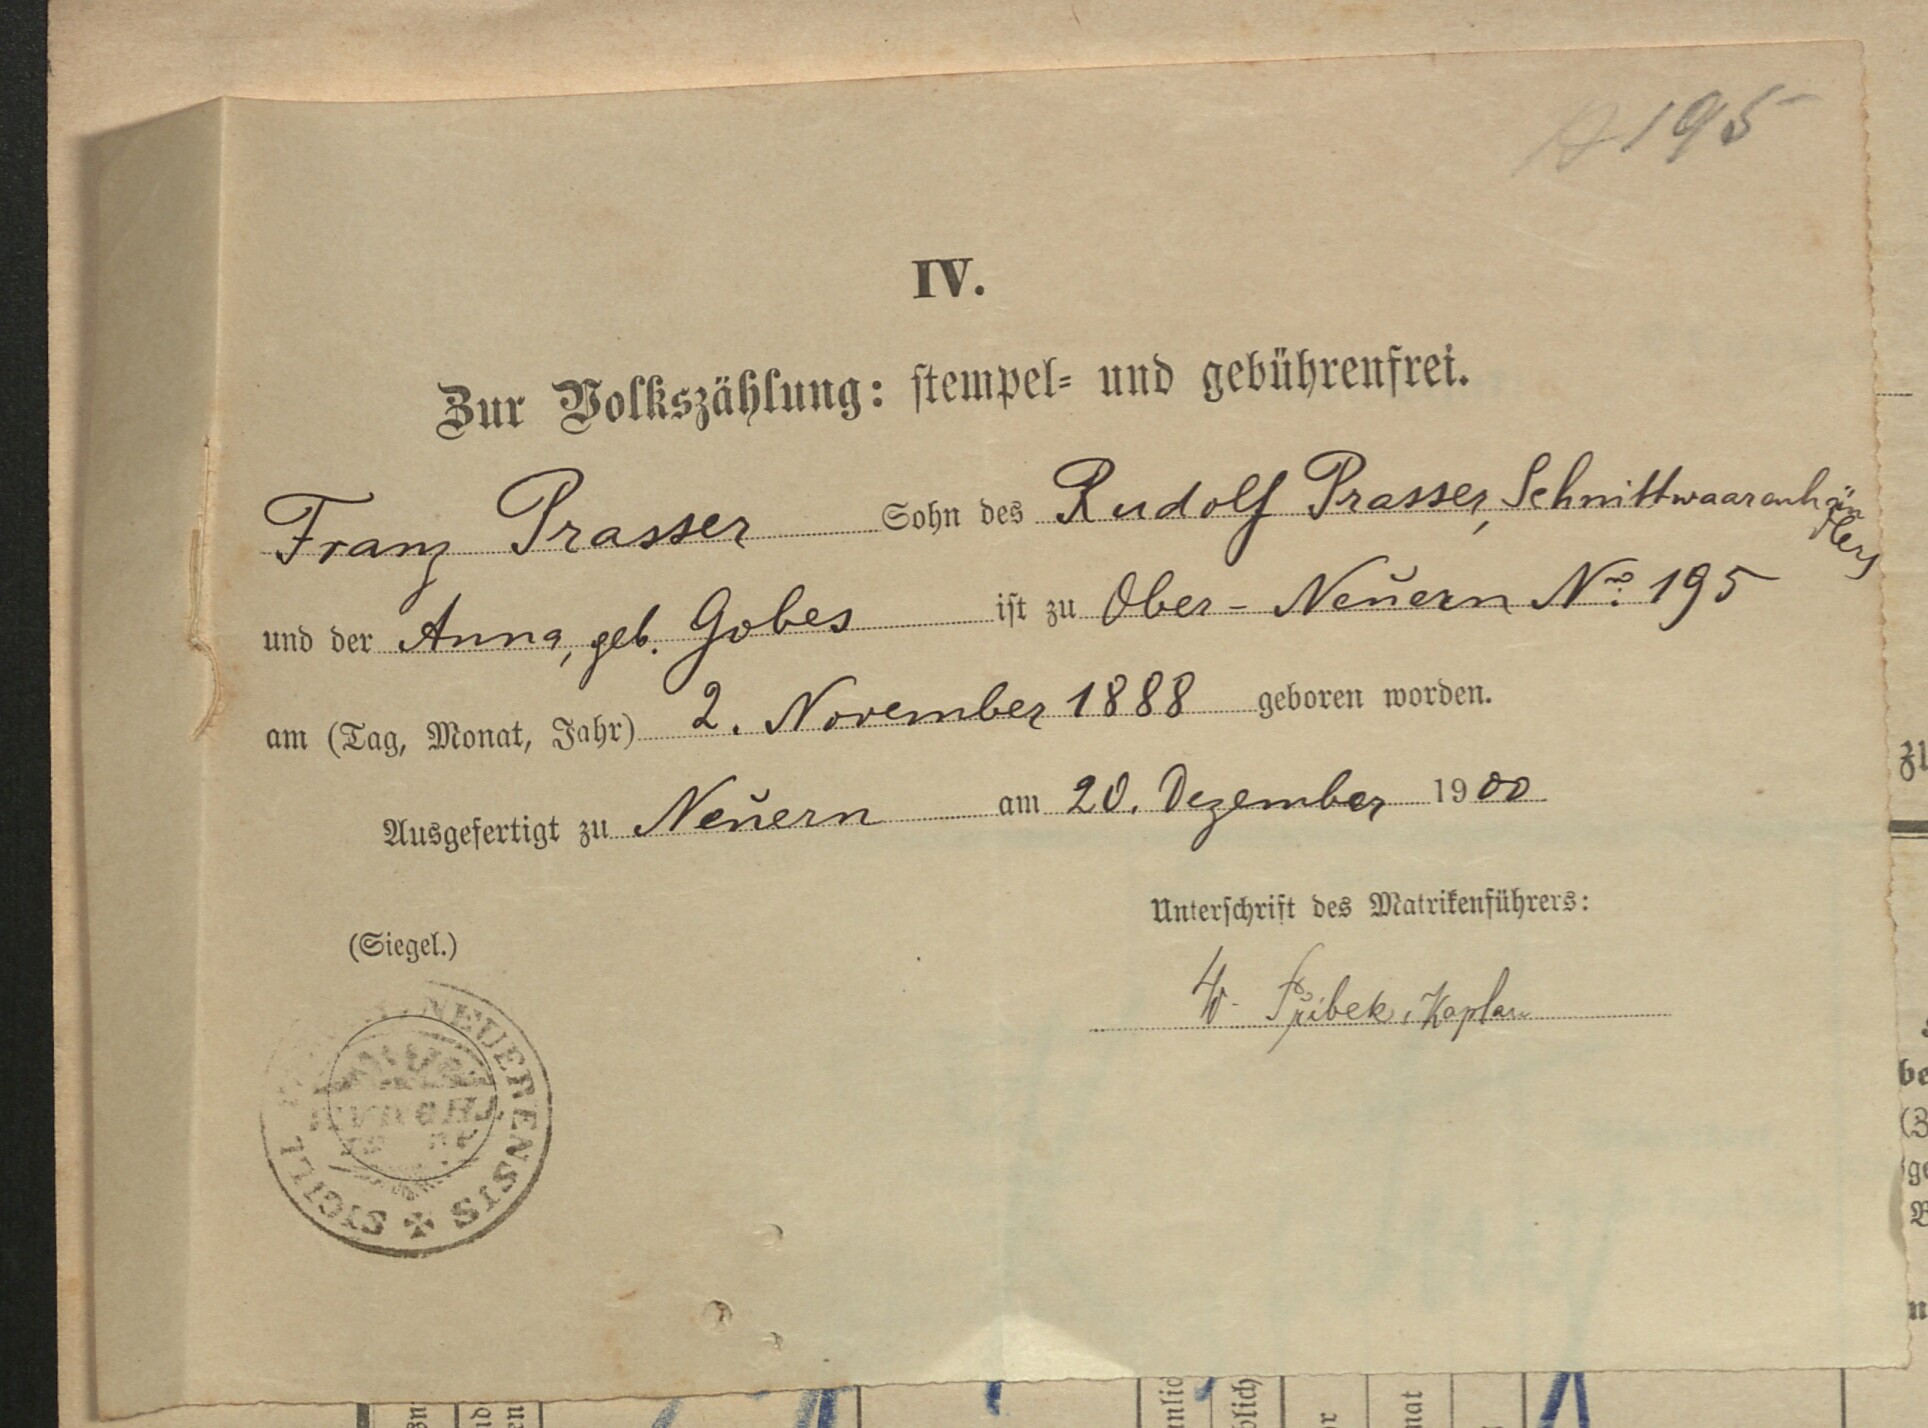 195
IV.
Zur Volkszählung: stempel- und gebührenfrei.
Franz Prasser Sohn des Rudolf Prasser, Schnittwaarenhändlers
und der Anna, geb. Gobes ist zu Ober-Neuern No. 195
am (Tag, Monat, Jahr) 2. November 1888 geboren worden.
Ausgefertigt zu Neuern am 20. Dezember 1900
Unterschrift des Matrikenführers:
(Siegel.)
W. Přibek, Kaplan
SIGILL NEUERENSIS